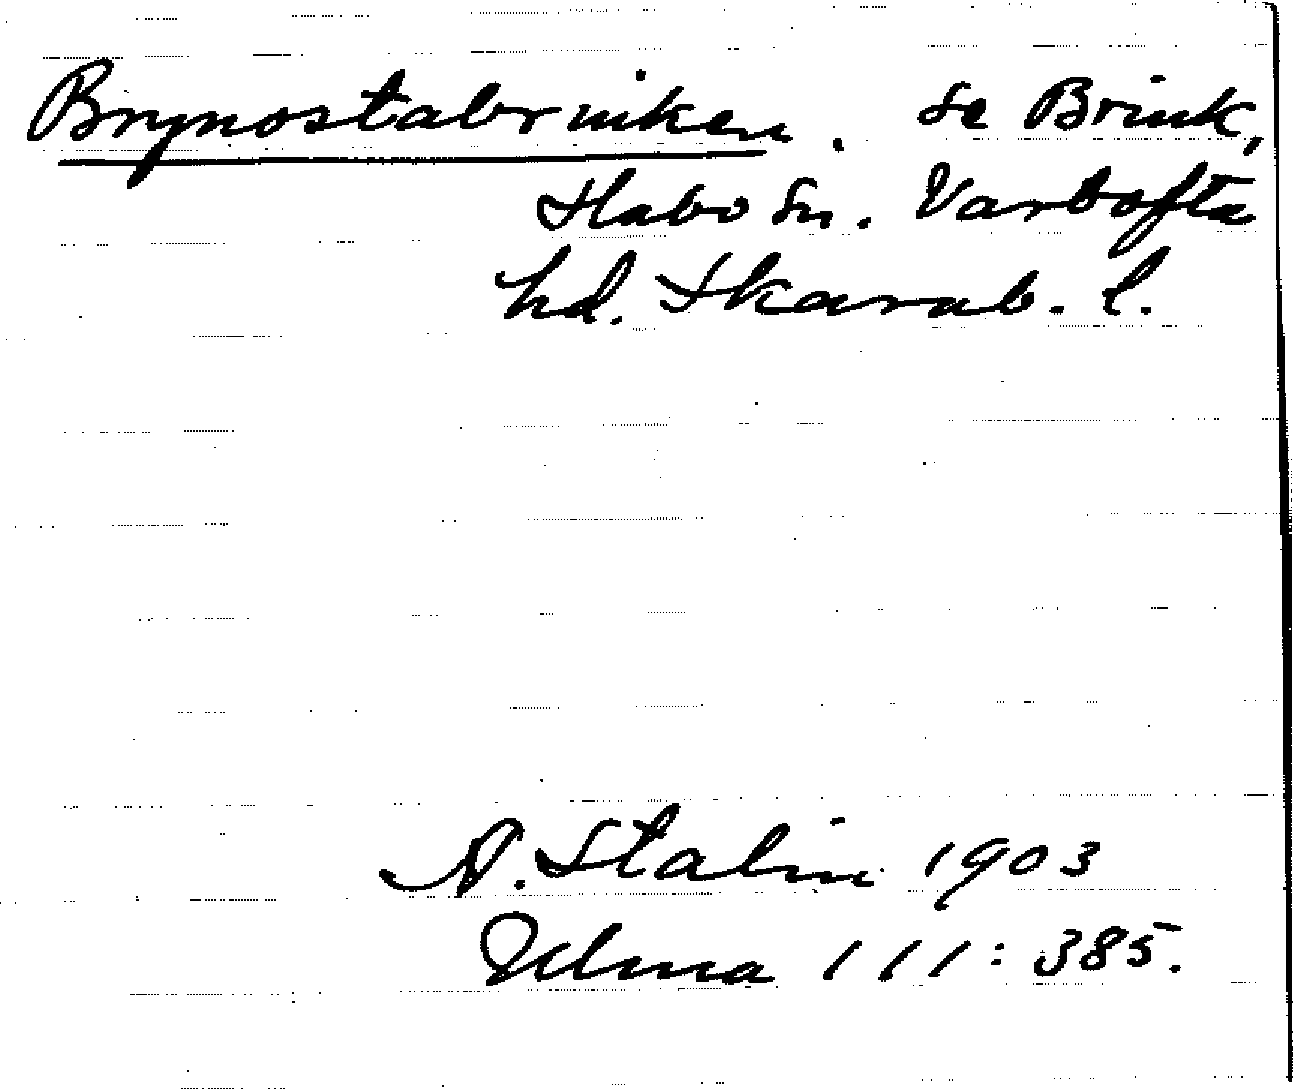 Brynostabrinken. se Brink,
Habo sn. Vartofta
hd. Skarab. l.
A. Stalin 1903
Ulma 111:385.